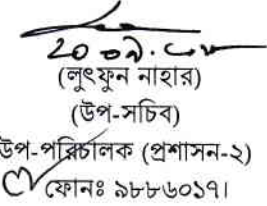 (লুৎফুন নাহার)
(উপ-সচিব)
উপ-পরিচালক (প্রশাসন-২)
ফোনঃ ৯৮৮৬০১৭।